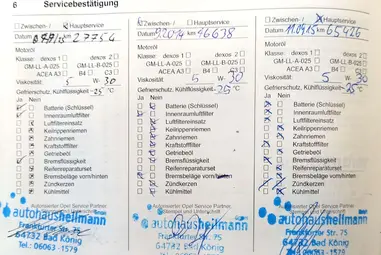 6 Servicebestätigung
Zwischen- / Hauptservice
Datum km 27754
Motoröl
Klasse: dexos 1 dexos 2
GM-LL-A-025 GM-LL-B-025
ACEA A3 B4 C3
Viskosität: 5 W- 30
Gefrierschutz, Kühlflüssigkeit: -25 °C
Ja Nein
Batterie (Schlüssel)
Innenraumluftfilter
Luftfiltereinsatz
Keilrippenriemen
Zahnriemen
Kraftstofffilter
Getriebeöl
Bremsflüssigkeit
Reifenreparaturset
Bremsbeläge vorn/hinten
Zündkerzen
Kühlmittel
Autorisierter Opel Service Partner
autohaushellmann
Frankfurter Str. 75
64732 Bad König
Tel.: 06063 - 1579
Zwischen- / Hauptservice
Datum km 46638
Motoröl
Klasse: dexos 1 dexos 2
GM-LL-A-025 GM-LL-B-025
ACEA A3 B4 C3
Viskosität: 5 W- 30
Gefrierschutz, Kühlflüssigkeit: -25 °C
Ja Nein
Batterie (Schlüssel)
Innenraumluftfilter
Luftfiltereinsatz
Keilrippenriemen
Zahnriemen
Kraftstofffilter
Getriebeöl
Bremsflüssigkeit
Reifenreparaturset
Bremsbeläge vorn/hinten
Zündkerzen
Kühlmittel
Autorisierter Opel Service Partner
Stempel und Unterschrift
autohaushellmann
Frankfurter Str. 75
64732 Bad König
Tel.: 06063 - 1579
Zwischen- / Hauptservice
Datum 11.09.15 km 65426
Motoröl
Klasse: dexos 1 dexos 2
GM-LL-A-025 GM-LL-B-025
ACEA A3 B4 C3
Viskosität: 5 W- 30
Gefrierschutz, Kühlflüssigkeit: -25 °C
Ja Nein
Batterie (Schlüssel)
Innenraumluftfilter
Luftfiltereinsatz
Keilrippenriemen
Zahnriemen
Kraftstofffilter
Getriebeöl
Bremsflüssigkeit
Reifenreparaturset
Bremsbeläge vorn/hinten
Zündkerzen
Kühlmittel
Autorisierter Opel Service Partner
Stempel und Unterschrift
autohaushellmann
Frankfurter Str. 75
64732 Bad König
Tel.: 06063 - 1579